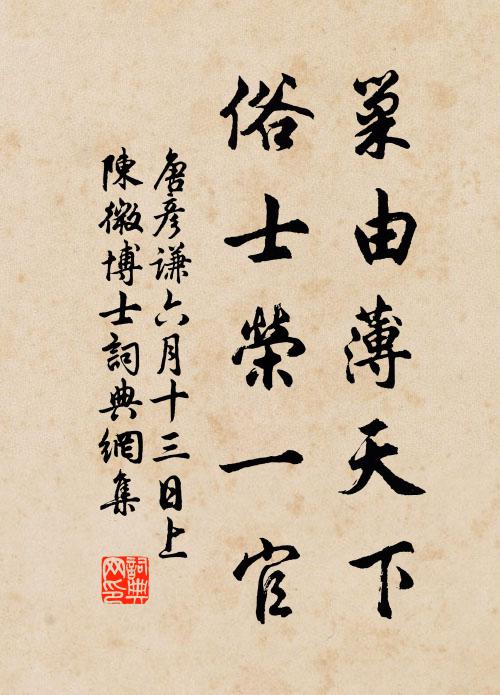 巢由薄天下
俗士榮一官
唐彥謙六月十三日上
陳微博士詞典網集
詞典网印